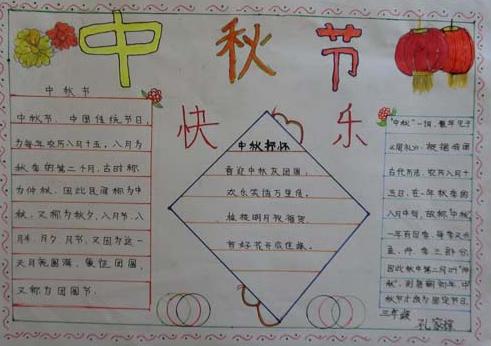 中秋节
快乐
中秋节
中秋节，中国传统节日，
为每年农历八月十五，八月为
秋季的第二个月，古时称
为仲秋，因此民间称为中
秋，又称为秋夕，八月节，八
月半，月夕，月节，又因为这一
天月亮圆满，象征团圆，
又称为团圆节。
中秋抒怀
喜迎中秋友团圆，
欢乐笑语万里传，
花好开
"中秋"一词，最早见于
《周礼》，根据我国
古代历法，农历八月十
五日，在一年秋季的
八月中旬，故称"中秋"
一年有四季，每季又分
孟、仲、季三部分，
因此秋中第二月叫"仲
秋"，到唐朝初年，中
秋节才成为固定节日。
三年级